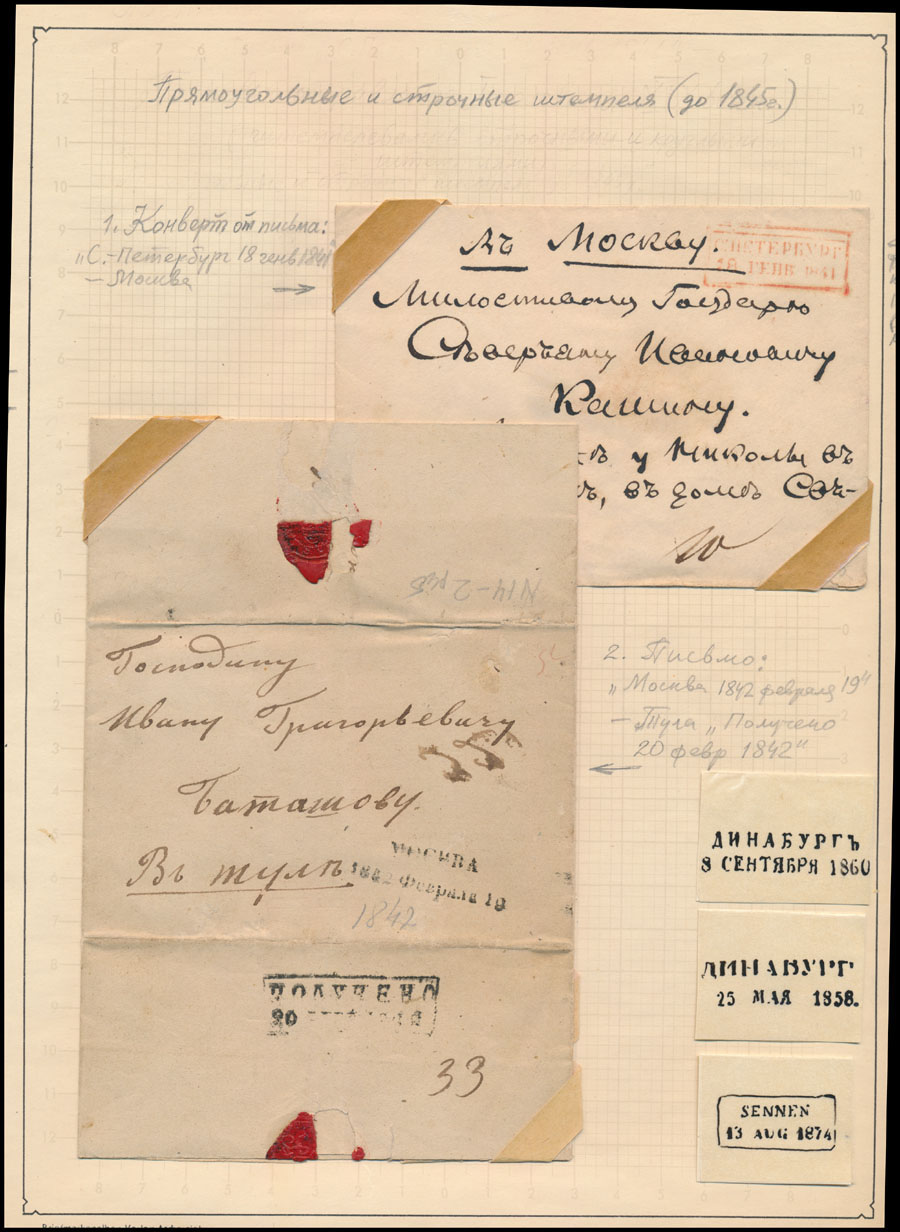 Прямоугольные и строчные штемпеля (до 1845г.)
1. Конверт от письма:
„С.-Петербург 18 генв 1841"
— Москва
Въ Москву.
С.ПЕТЕРБУРГ
18 ГЕНВ. 1841
Милостивому Государю
Съверъяну Ивановичу
Кашину.
у Николы въ
въ домѣ Свѣ-
N14-2 руб
Господину
Ивану Григорьевичу
Баташову.
Въ тулѣ.
МОСКВА
1842 февраля 19
1842
ПОЛУЧЕНО
20
33
2. Письмо:
„Москва 1842 февраля 19"
— Тула „Получено
20 февр 1842"
ДИНАБУРГЪ
8 СЕНТЯБРЯ 1860
ДИНАБУРГ
25 МАЯ 1858.
SENNEN
13 AUG 1874